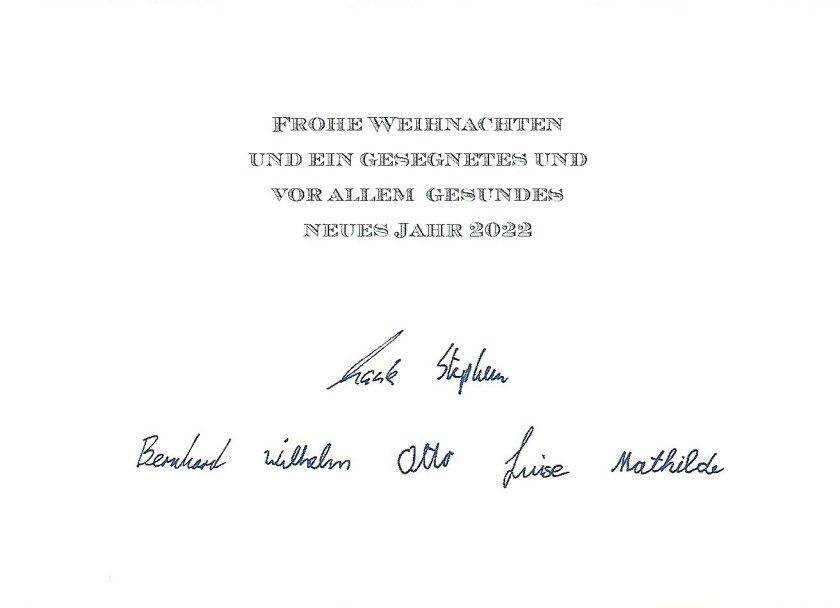 FROHE WEIHNACHTEN
UND EIN GESEGNETES UND
VOR ALLEM GESUNDES
NEUES JAHR 2022
Stephan
Bernhard Wilhelm Otto Luise Mathilde